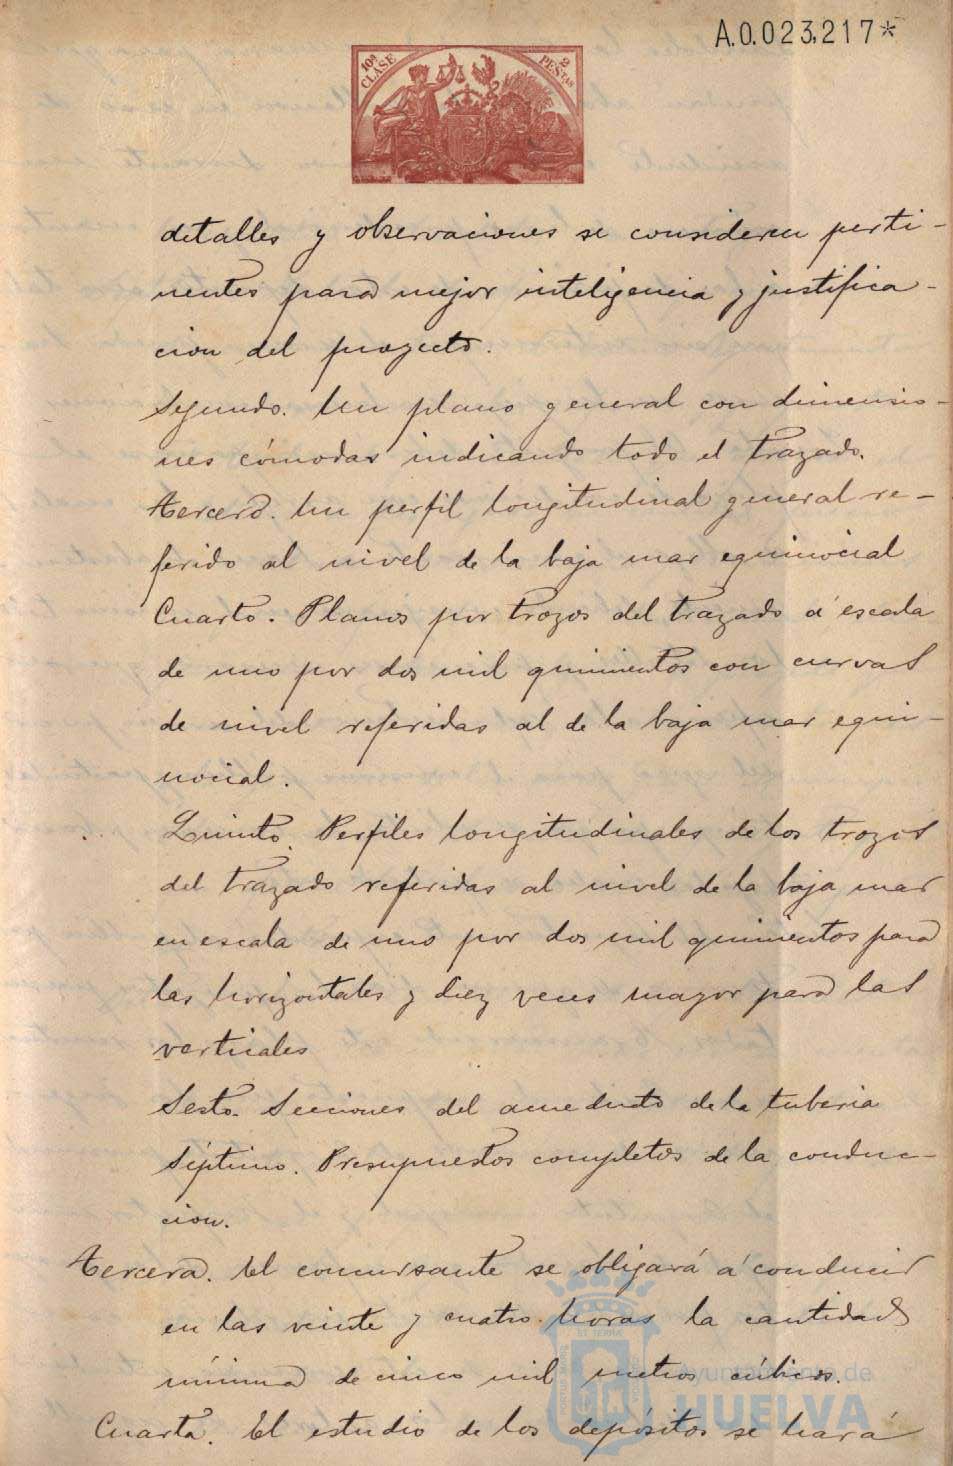 A.0.023,217*
10ª CLASE 2 PESETAS
detalles y observaciones se consideren perti-
nentes para mejor inteligencia y justifica-
cion del proyecto.
Segundo. Un plano general con dimensio-
nes cómodas indicando todo el trazado.
Tercero. Un perfil longitudinal general re-
ferido al nivel de la baja mar equinocial
Cuarto. Planos por trozos del trazado á escala
de uno por dos mil quinientos con curvas
de nivel referidas al de la baja mar equi-
nocial.
Quinto. Perfiles longitudinales de los trozos
del trazado referidas al nivel de la baja mar
en escala de uno por dos mil quinientos para
las horizontales y diez veces mayor para las
verticales
Sesto. Secciones del acueducto de la tuberia
Séptimo. Presupuestos completos de la conduc-
cion.
Tercera. El concursante se obligará á conducir
en las veinte y cuatro horas la cantidad
mínima de cinco mil metros cúbicos.
Cuarta. El estudio de los depósitos se hará
Ayuntamiento de
HUELVA